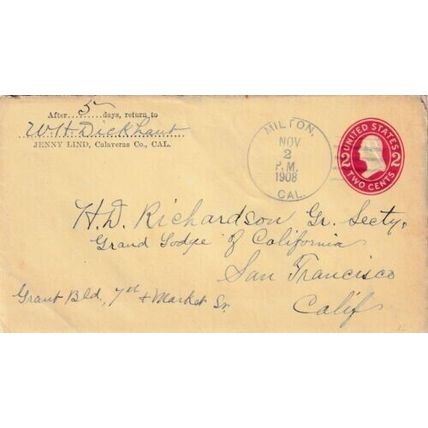 After 5 days, return to
W H Dickhaut
JENNY LIND, Calaveras Co., CAL.
MILTON,
NOV
2
P.M.
1908
CAL.
UNITED STATES
2 2
TWO CENTS
H. D. Richardson Gr. Secty.
Grand Lodge of California
San Francisco
Grant Bld, 7th & Market Sts
Calif